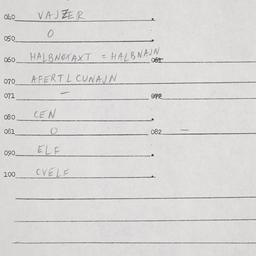 040 VAJZER
050 O
060 HALBNOTAXT = HALBNAJN 061
070 AFERTLCUNAJN
071 — 072
080 CEN
081 O 082 —
090 ELF
100 CVELF